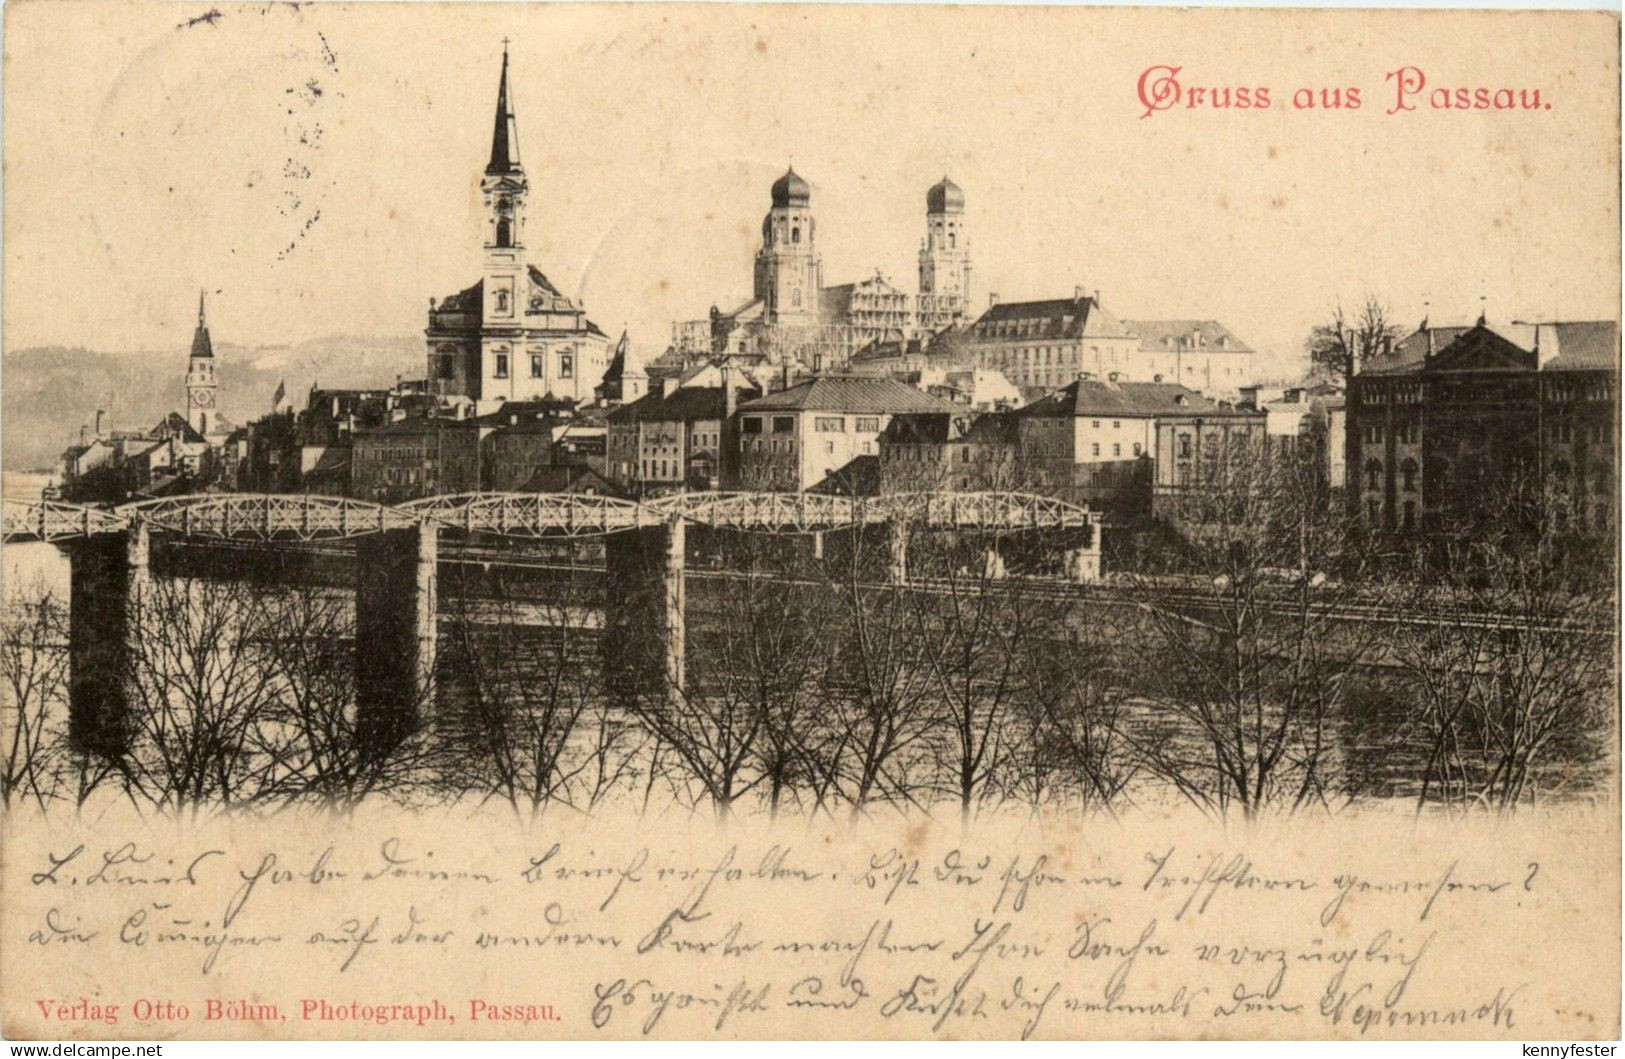 Gruss aus Passau.
L. Luis habe deinen Brief erhalten. Bist Du schon in Triftern gewesen?
Die auf der andern Karte machten Ihre Sache vorzüglich
Es grüßt und Küßt Dich vielmals Dein
Verlag Otto Böhm, Photograph, Passau.
www.delcampe.net
kennyfester